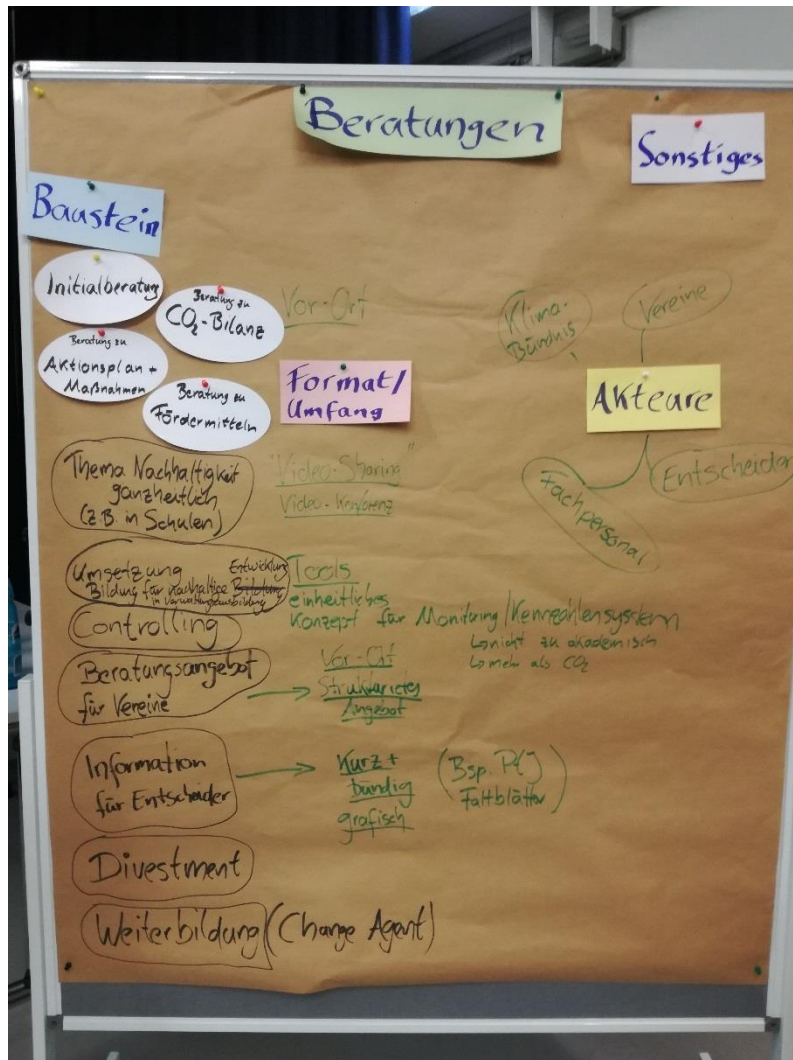 Beratungen
Sonstiges
Baustein
Initialberatung
Beratung zu
CO₂-Bilanz
Beratung zu
Aktionsplan +
Maßnahmen
Beratung zu
Fördermitteln
Vor-Ort
Format/
Umfang
Klima-
Bündnis
Vereine
Akteure
Entscheider
Fachpersonal
Thema Nachhaltigkeit
ganzheitlich
(z.B. in Schulen)
"Video-Sharing"
Video-Konferenz
Umsetzung Entwicklung
Bildung für nachhaltige Bildung
in Verwaltungsausbildung
Tools
einheitliches
Konzept für Monitoring/Kennzahlensystem
↳nicht zu akademisch
↳mehr als CO₂
Controlling
Beratungsangebot
für Vereine
Vor-Ort
Strukturiertes
Angebot
Information
für Entscheider
Kurz +
bündig
grafisch
(Bsp.
Faltblätter)
Divestment
Weiterbildung (Change Agent)